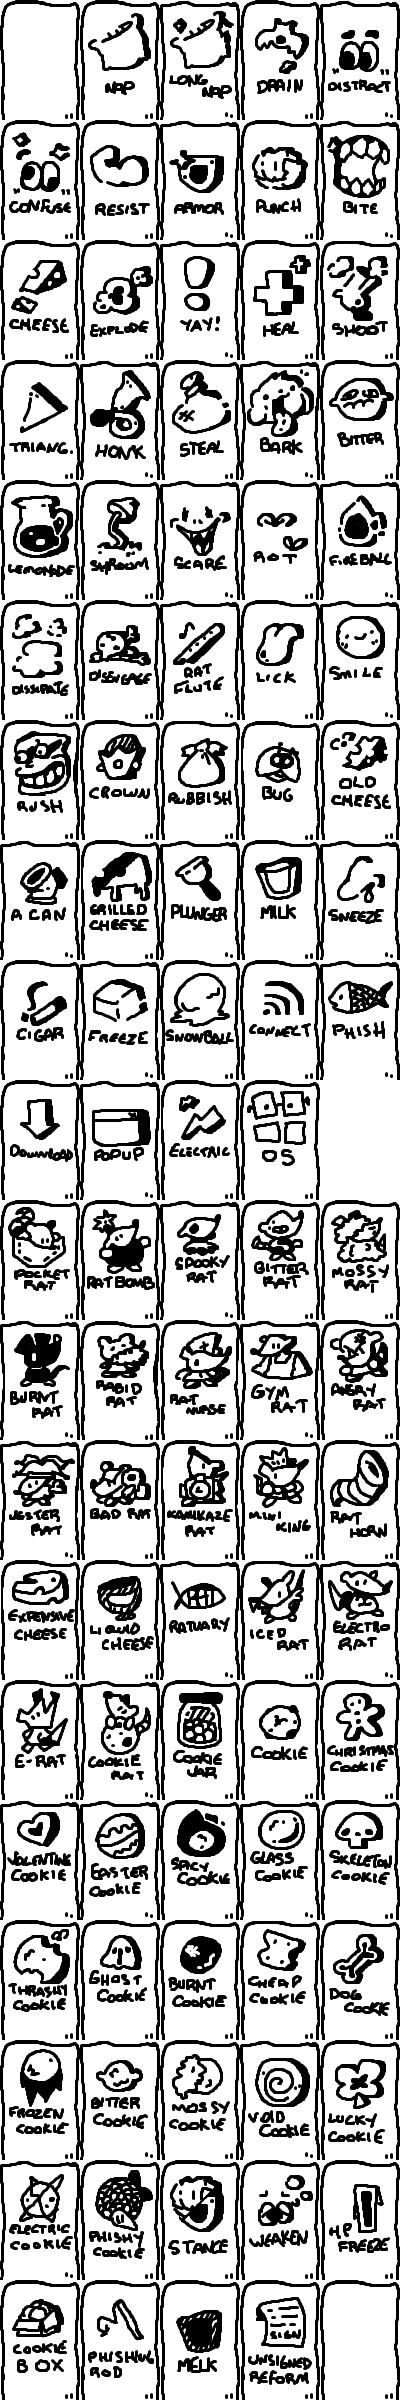 NAP
LONG
NAP
DRAIN
DISTRACT
CONFUSE
RESIST
ARMOR
PUNCH
BITE
CHEESE
EXPLODE
YAY!
HEAL
SHOOT
TRIANG.
HONK
STEAL
BARK
BITTER
LEMONADE
SHROOM
SCARE
ROT
FIREBALL
DISSIPATE
DISENGAGE
RAT
FLUTE
LICK
SMILE
RUSH
CROWN
RUBBISH
BUG
OLD
CHEESE
A CAN
GRILLED
CHEESE
PLUNGER
MILK
SNEEZE
CIGAR
FREEZE
SNOWBALL
CONNECT
PHISH
DOWNLOAD
POPUP
ELECTRIC
OS
POCKET
RAT
RAT BOMB
SPOOKY
RAT
BITTER
RAT
MOSSY
RAT
BURNT
RAT
RABID
RAT
RAT
NURSE
GYM
RAT
ANGRY
RAT
JESTER
RAT
BAD RAT
KAMIKAZE
RAT
MINI
KING
RAT
HORN
EXPENSIVE
CHEESE
LIQUID
CHEESE
RATUARY
ICED
RAT
ELECTRO
RAT
E-RAT
COOKIE
RAT
COOKIE
JAR
COOKIE
CHRISTMAS
COOKIE
VALENTINE
COOKIE
EASTER
COOKIE
SPICY
COOKIE
GLASS
COOKIE
SKELETON
COOKIE
THRASHY
COOKIE
GHOST
COOKIE
BURNT
COOKIE
CHEAP
COOKIE
DOG
COOKIE
FROZEN
COOKIE
BITTER
COOKIE
MOSSY
COOKIE
VOID
COOKIE
LUCKY
COOKIE
ELECTRIC
COOKIE
PHISHY
COOKIE
STANCE
WEAKEN
HP
FREEZE
COOKIE
BOX
PHISHING
ROD
MELK
SIGN
UNSIGNED
REFORM